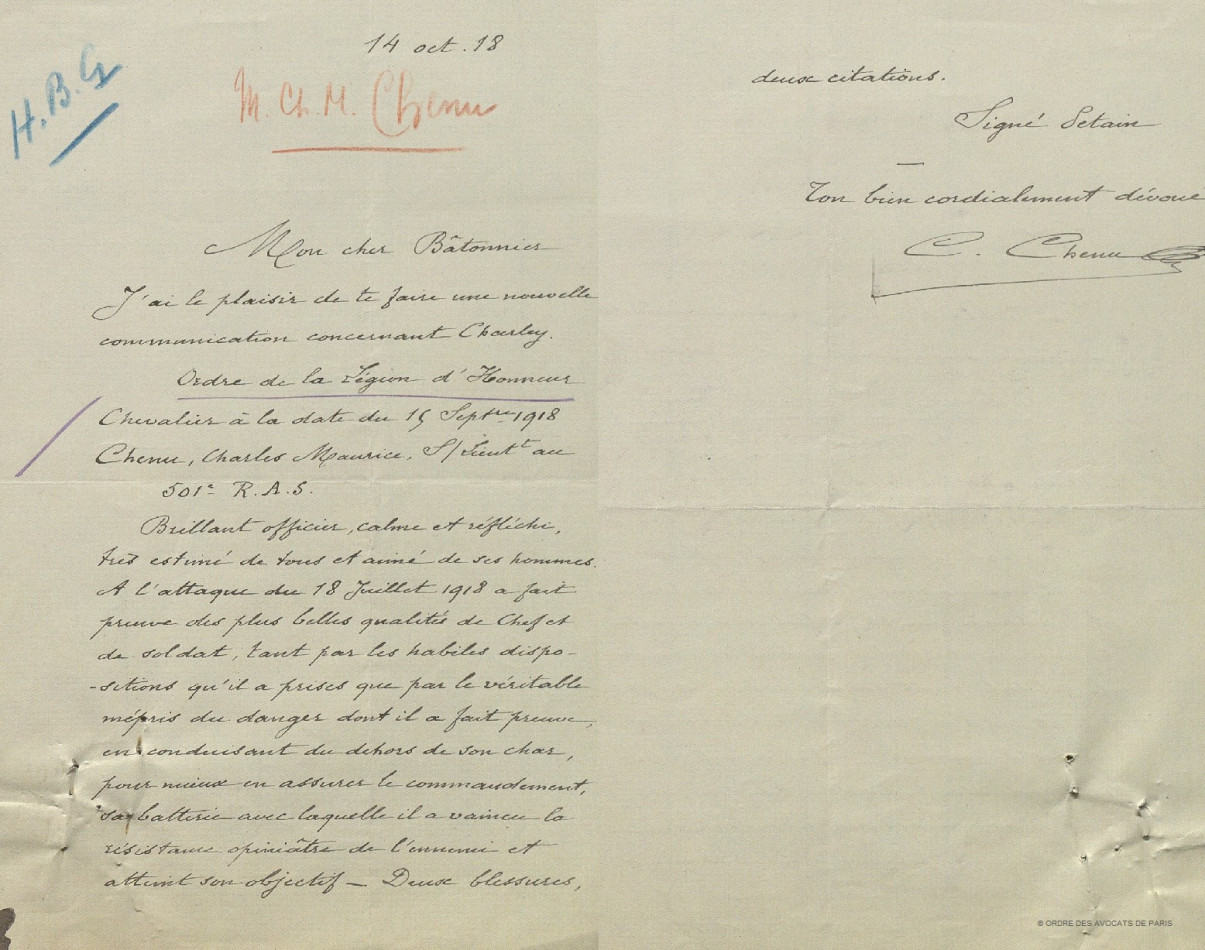 14 oct. 18
H. B. G
M. Ch. M. Chenu
Mon cher Bâtonnier
J'ai le plaisir de te faire une nouvelle
communication concernant Charley.
Ordre de la Légion d'Honneur
Chevalier à la date du 15 Septre 1918
Chenu, Charles Maurice, S/Lieutt au
501e R. A. S.
Brillant officier, calme et réfléchi,
très estimé de tous et aimé de ses hommes.
A l'attaque du 18 Juillet 1918 a fait
preuve des plus belles qualités de Chef et
de soldat, tant par les habiles dispo-
-sitions qu'il a prises que par le véritable
mépris du danger dont il a fait preuve,
en conduisant du dehors de son char,
pour mieux en assurer le commandement,
sa batterie avec laquelle il a vaincu la
résistance opiniâtre de l'ennemi et
atteint son objectif — Deux blessures,
deux citations.
Signé Petain
—
Ton bien cordialement dévoué
C. Chenu
© ORDRE DES AVOCATS DE PARIS